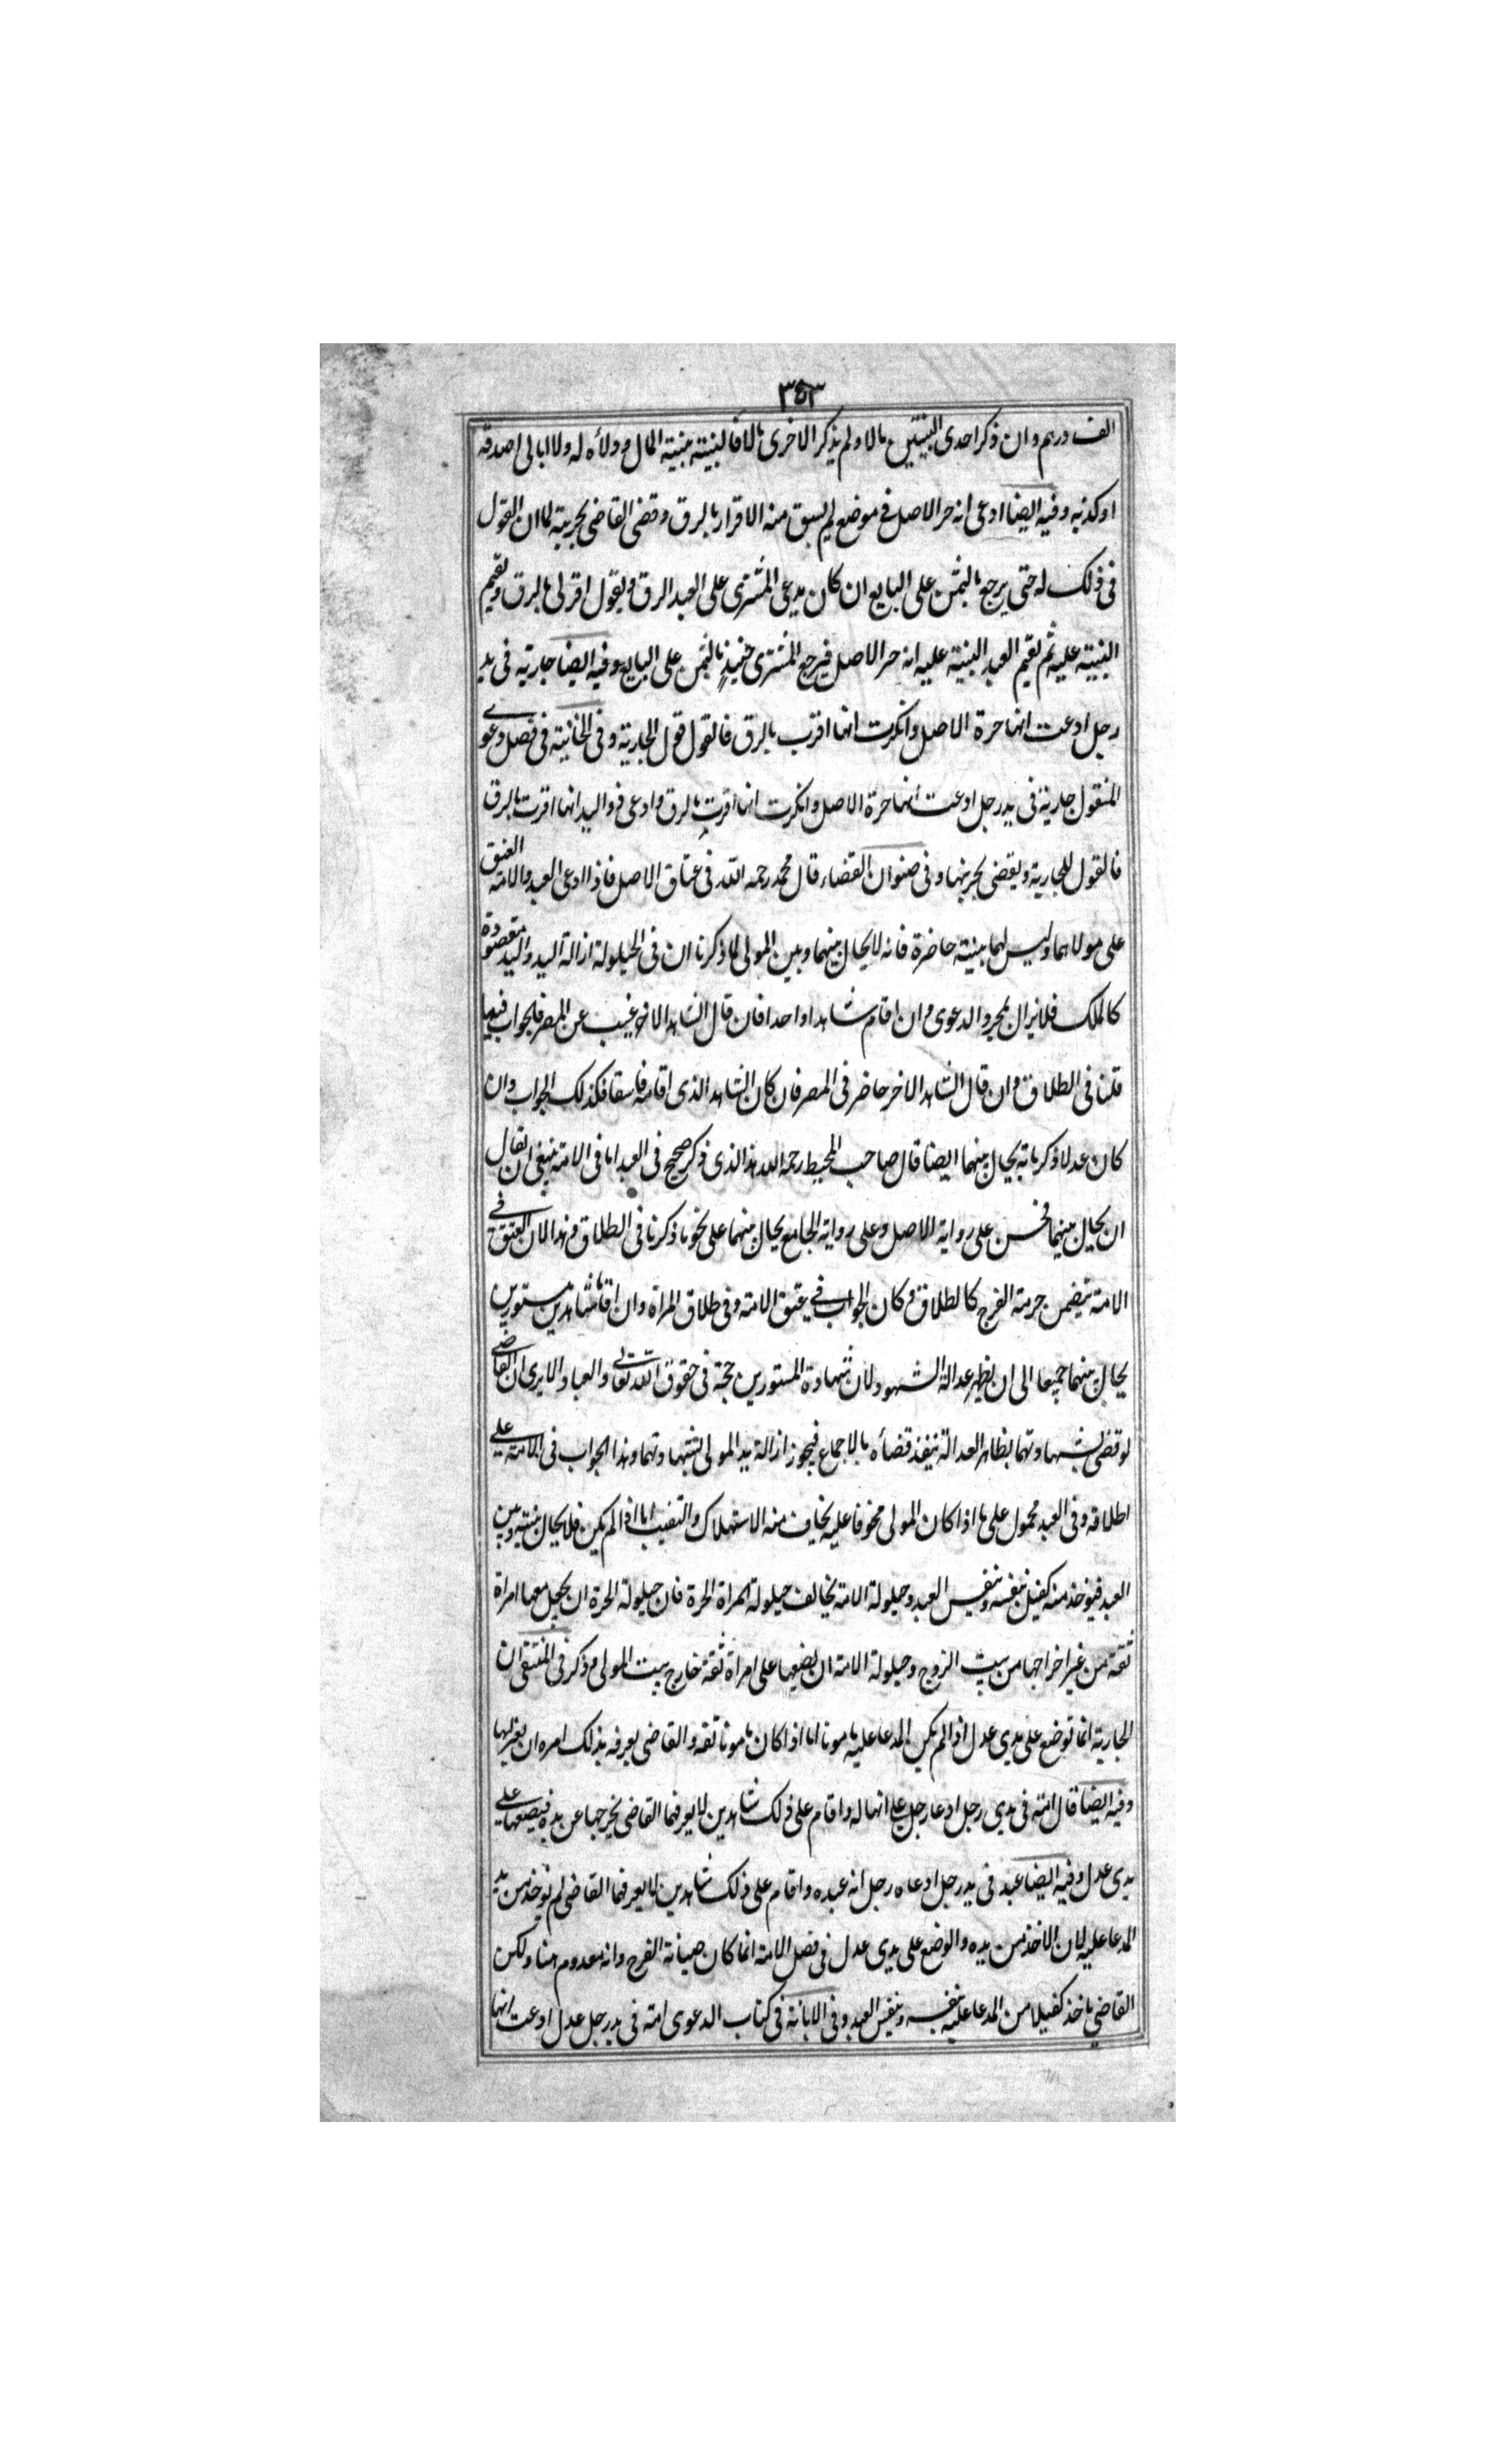 ٣٥٣
الف درهم وان ذكر احدى البينتين مالا ولم يذكر الاخرى مالا فالبينة بينة المال وولاؤه له ولا ابالى اصدقه
او كذبه وفيه ايضا ادعى انه حر الاصل فى موضع لم يسبق منه الاقرار بالرق وقضى القاضى بحريته لما ان القول
فى ذلك له حتى يرجع بالثمن على البايع ان كان يدعى المشترى على العبد الرق ويقول اقر لى بالرق ويقيم
البينة عليه ثم يقيم العبد البينة عليه انه حر الاصل فيرجع المشترى حينئذ بالثمن على البايع وفيه ايضا جارية فى يد
رجل ادعت انها حرة الاصل وانكرت انها اقرت بالرق فالقول قول الجارية وفى الخانية فى فصل دعوى
المنقول جارية فى يد رجل ادعت انها حرة الاصل وانكرت انها اقرت بالرق وادعى ذو اليد انها اقرت بالرق
فالقول للجارية ويقضى بحريتها وفى صنوان القضاء قال محمد رحمه الله فى عتاق الاصل فاذا ادعى العبد والامة العتق
على مولاهما وليس لهما بينة حاضرة فانه لا يحال بينهما وبين المولى لما ذكرنا ان فى الحيلولة ازالة اليد واليد مقصودة
كالملك فلا يزال بمجرد الدعوى وان اقام شاهدا واحدا فان قال الشاهد الاخر غيب عن المصر فالجواب فيها
قلنا فى الطلاق وان قال الشاهد الاخر حاضر فى المصر فان كان الشاهد الذى اقامه فاسقا فكذلك الجواب وان
كان عدلا ذكر بانه يحال بينهما ايضا قال صاحب المحيط رحمه الله هذا الذى ذكر صحيح فى العبد اما فى الامة ينبغى ان يقال
ان يحيل بينهما فحسن على رواية الاصل وعلى رواية الجامع يحال بينهما على نحو ما ذكرنا فى الطلاق وهذا لان العتق فى
الامة يتضمن حرمة الفرج كالطلاق وكان الجواب فى عتق الامة وفى طلاق المراة وان اقاما شاهدين مستورين
يحال بينهما جميعا الى ان يظهر عدالة الشهود لان شهادة المستورين حجة فى حقوق الله تعالى والعباد الا يرى ان القاضى
لو قضى بشهادتهما بظاهر العدالة ينفذ قضاؤه بالاجماع فيجوز ازالة يد المولى بشهادتهما وهذا الجواب فى الامة على
اطلاقه وفى العبد محمول على ما اذا كان المولى مخوفا عليه يخاف منه الاستهلاك والتغيب اما اذا لم يكن فلا يحال بينه وبين
العبد فيوخذ منه كفيل بنفسه وبنفس العبد وحيلولة الامة يخالف حيلولة المراة الحرة فان حيلولة الحرة ان يجعل معها امراة
ثقة من غير اخراجها من بيت الزوج وحيلولة الامة ان يضعها على امراة ثقة خارج بيت المولى وذكر فى المنتقى ان
الجارية انما توضع على يدى عدل اذا لم يكن المدعا عليه مامونا اما اذا كان مامونا ثقة والقاضى يعرفه بذلك امره ان يعزلها
وفيه ايضا قال امة فى يدى رجل ادعا رجل انها له واقام على ذلك شاهدين لا يعرفهما القاضى يخرجها عن يده فيضعها على
يدى عدل وفيه ايضا عبد فى يد رجل ادعاه رجل انه عبده واقام على ذلك شاهدين لا يعرفهما القاضى لم يوخذ من يد
المدعا عليه لان الاخذ من يده والوضع على يدى عدل فى فصل الامة انما كان صيانة الفرج وانه معدوم هنا ولكن
القاضى ياخذ كفيلا من المدعا عليه بنفسه وبنفس العبد وفى الابانة فى كتاب الدعوى امة فى يد رجل عدل ادعت انها